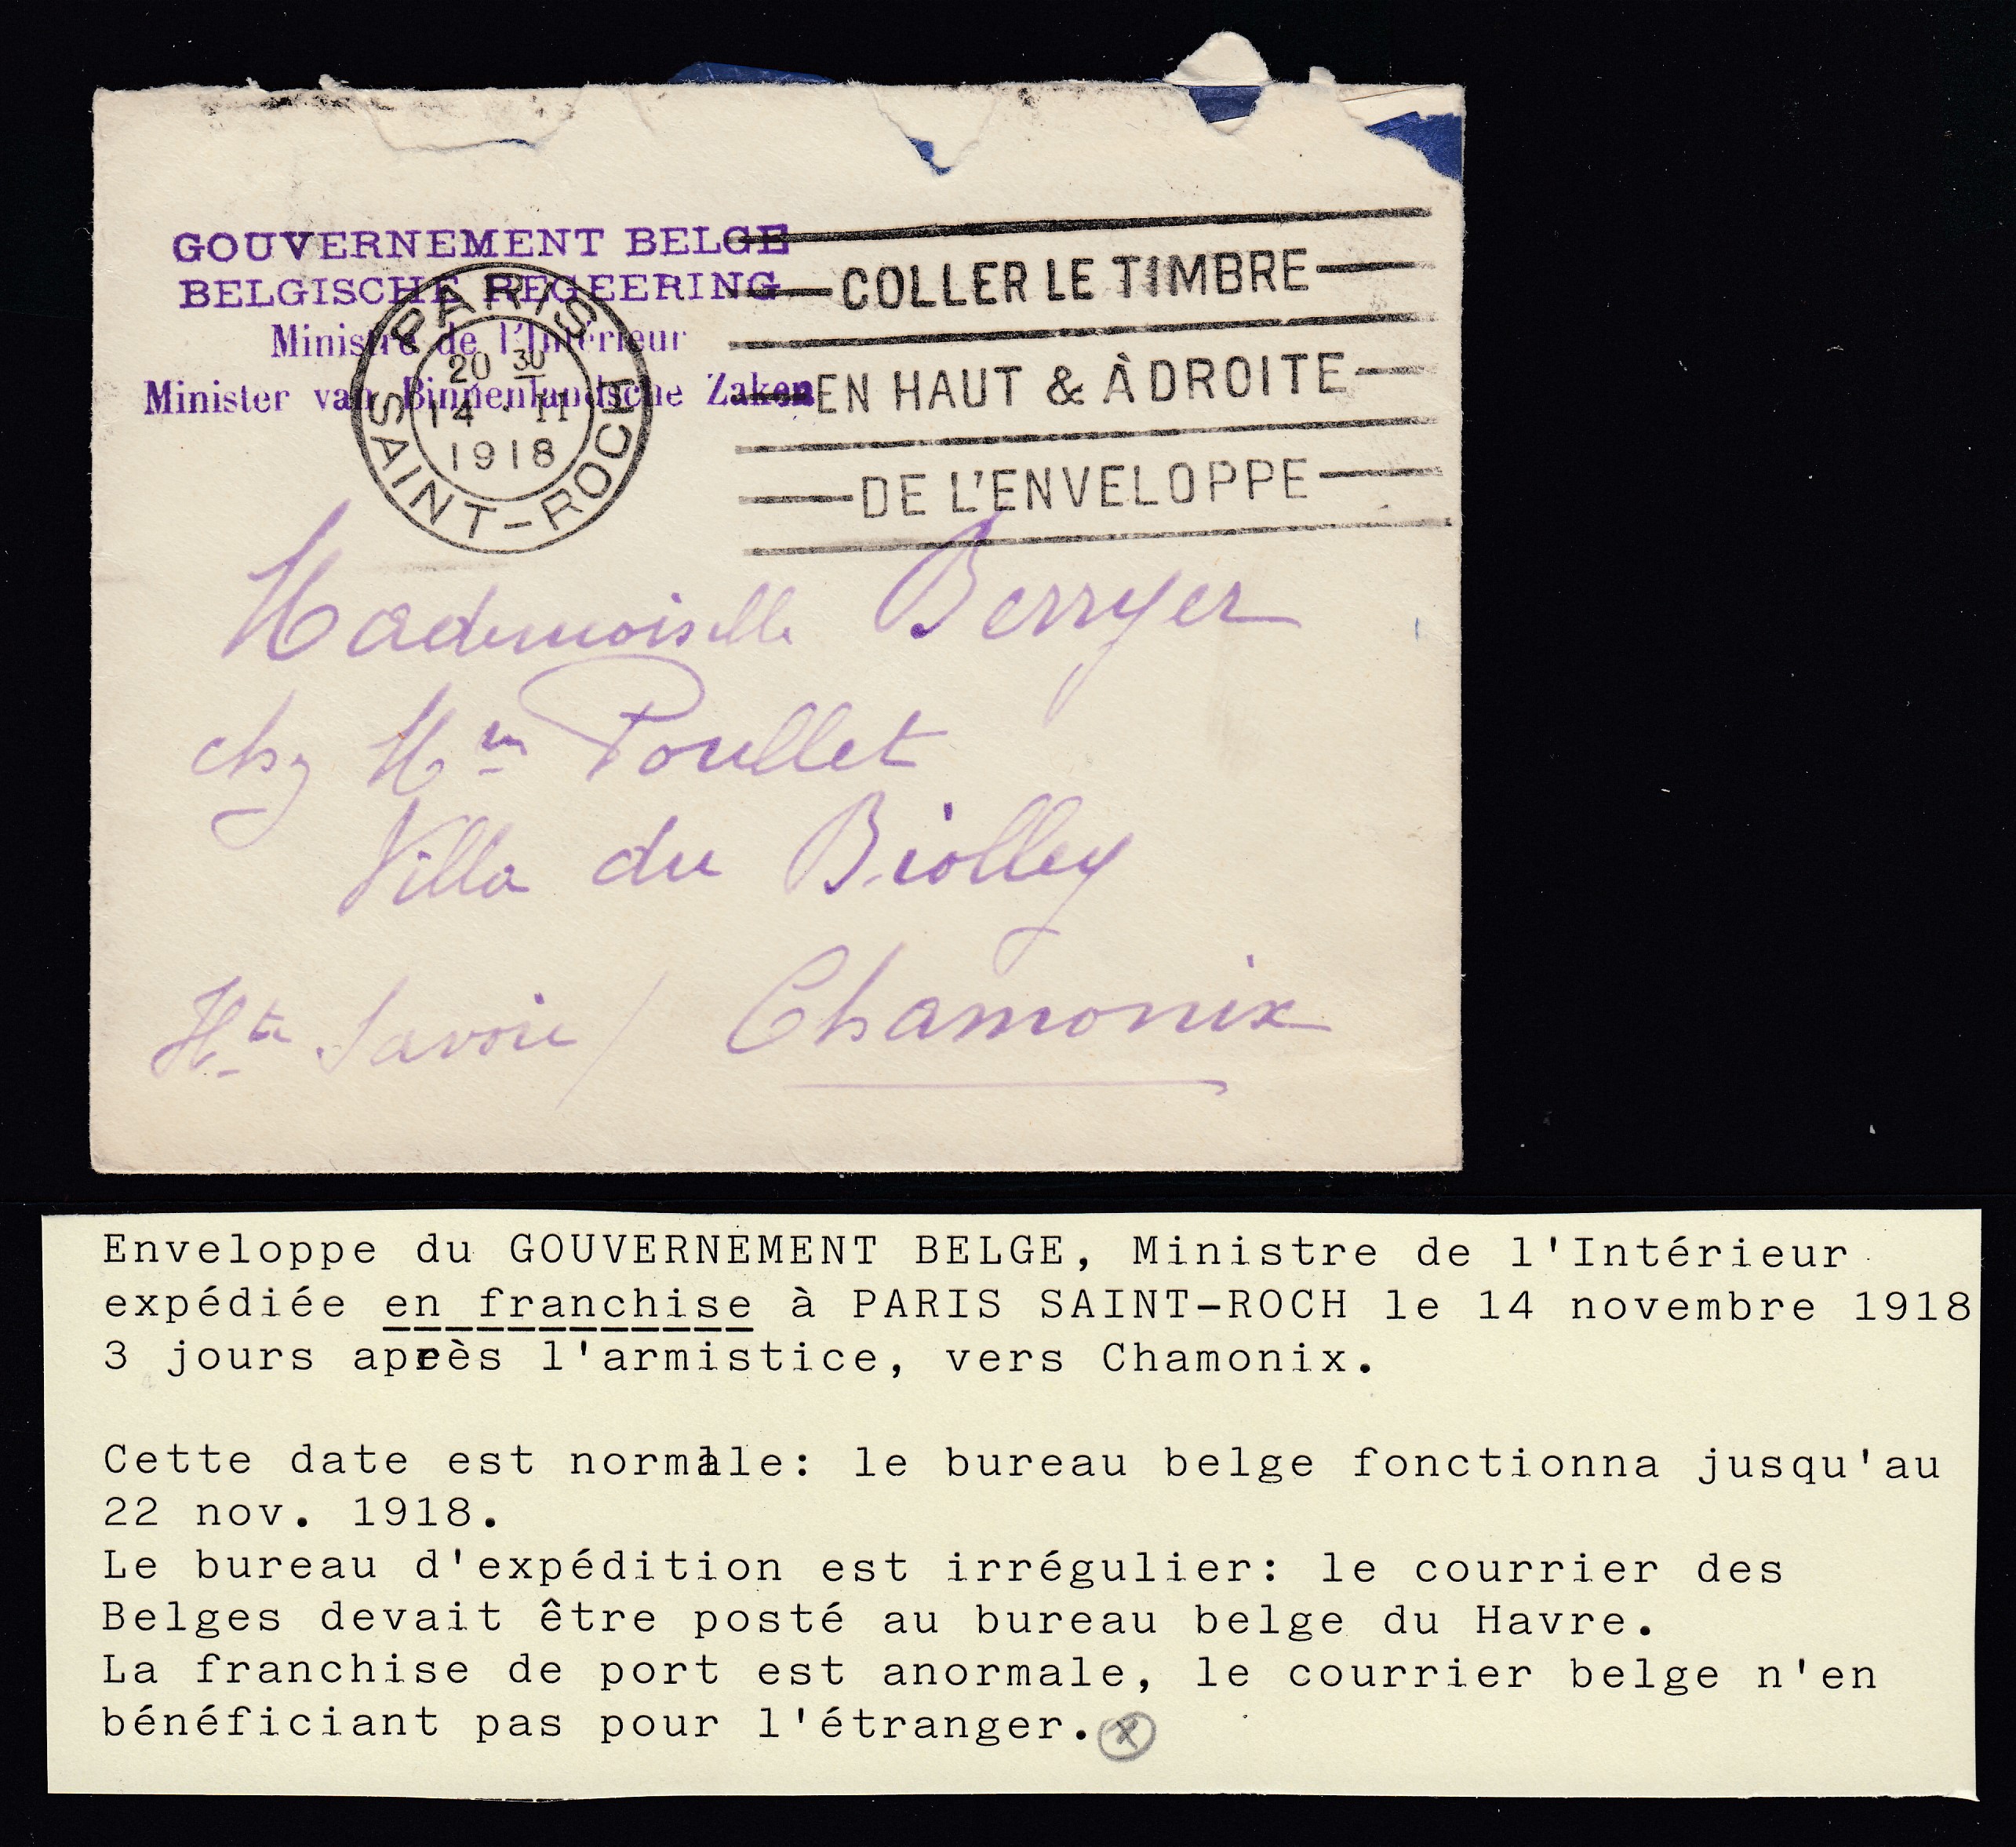 GOUVERNEMENT BELGE
BELGISCHE REGEERING
Ministre de l'Intérieur
Minister van Binnenlandsche Zaken
PARIS
20 30
14 · 11
1918
SAINT-ROCH
COLLER LE TIMBRE
EN HAUT & À DROITE
DE L'ENVELOPPE
Mademoiselle Berryer
chez Mm Poullet
Villa du Biolley
Hte Savoie / Chamonix
Enveloppe du GOUVERNEMENT BELGE, Ministre de l'Intérieur
expédiée en franchise à PARIS SAINT-ROCH le 14 novembre 1918
3 jours après l'armistice, vers Chamonix.
Cette date est normale: le bureau belge fonctionna jusqu'au
22 nov. 1918.
Le bureau d'expédition est irrégulier: le courrier des
Belges devait être posté au bureau belge du Havre.
La franchise de port est anormale, le courrier belge n'en
bénéficiant pas pour l'étranger. x